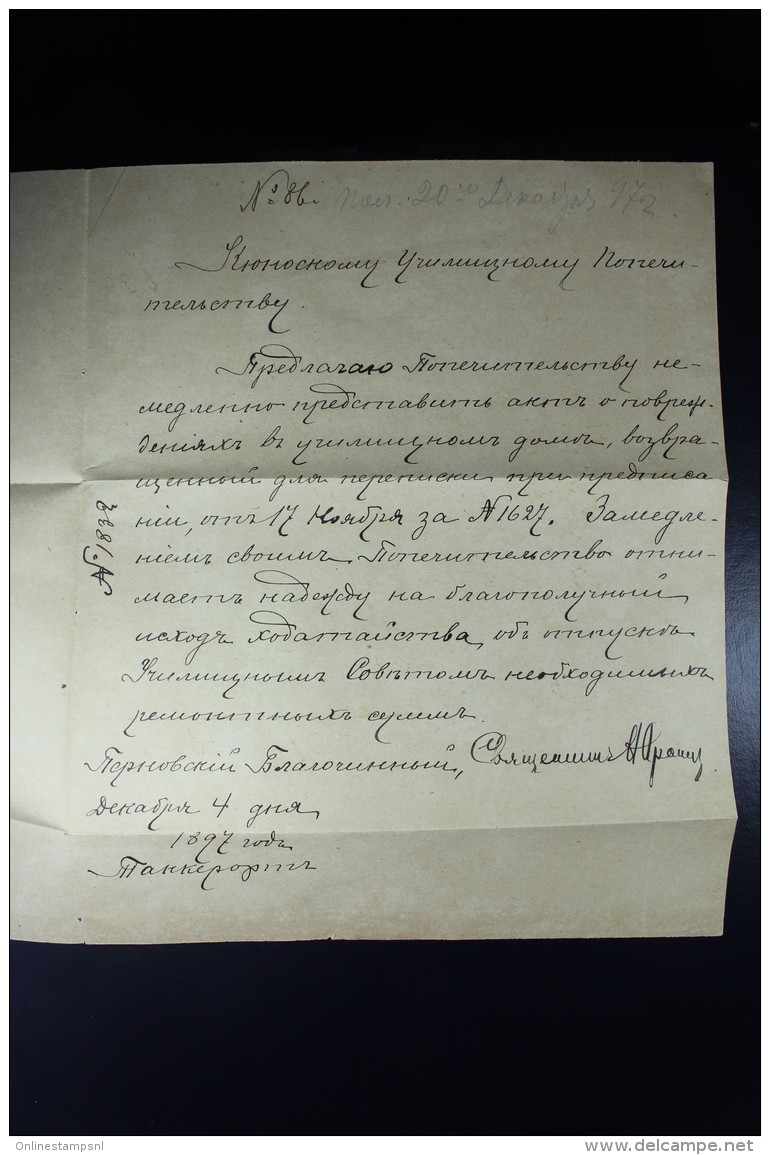 № 86. Пол. 20го Декабря 97 г.
Кюноскому Училищному Попечи-
тельству.
Предлагаю Попечительству не-
медленно представить актъ о повреж-
денiяхъ въ училищномъ домѣ, возвра-
щенный для переписки при предписа
нiи, отъ 17 Ноября за №1627. Замедле-
нiемъ своимъ Попечительство отни-
маетъ надежду на благополучный
исходъ ходатайства, объ отпускѣ
Училищнымъ Совѣтомъ необходимыхъ
ремонтныхъ суммъ.
Перновскiй Благочинный, Священникъ
Декабря 4 дня
1897 года
Таккерортъ
№1833
Onlinestampsnl
http://www.delcampe.net